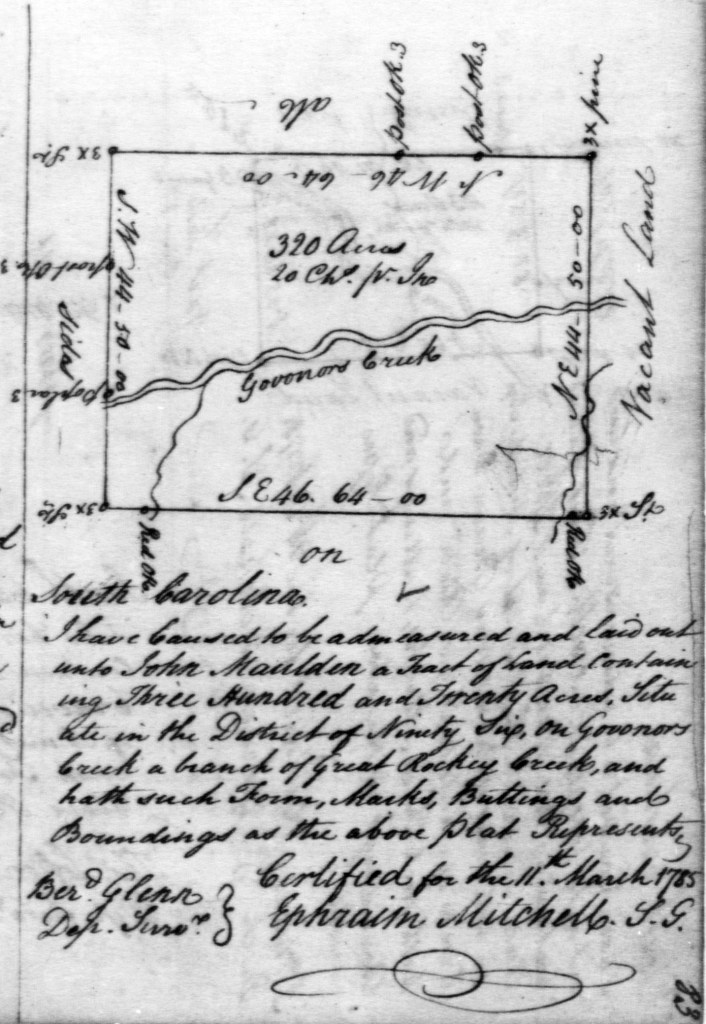 all
post Ok. 3
post Ok. 3
3x pine
3x St.
N W 46 – 64 – 00
S. W 44 – 50 – 00
320 Acres
20 Chs. pr. In
N E 44 – 50 – 00
Vacant Land
post Ok. 3
sides
Poplar 3
Govonors Creek
S E 46. 64 – 00
3x St.
3x St.
Red Ok
Red Ok
on
South Carolina.
I have Caused to be admeasured and laid out
unto John Maulden a Tract of Land Contain
ing Three Hundred and Twenty Acres, Situ
ate in the District of Ninety Six, on Govonors
Creek a branch of Great Rockey Creek, and
hath such Form, Marks, Buttings and
Boundings as the above plat Represents,
Certified for the 11th. March 1785
Berd. Glenn
Dep. Survr.
Ephraim Mitchell. S. G.